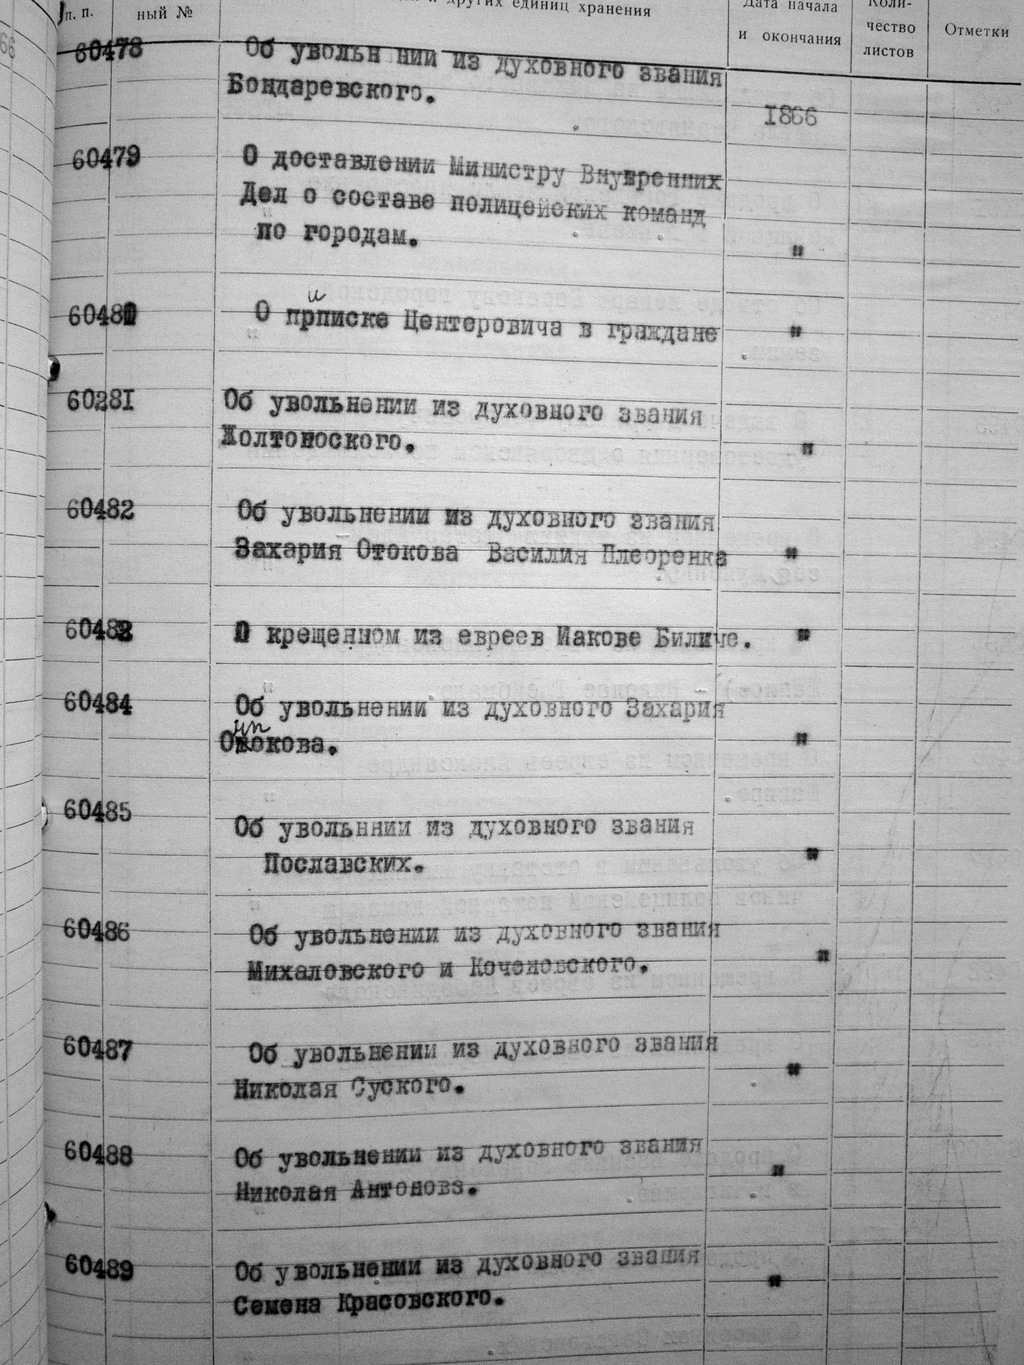 п. п.
ный №
и других единиц хранения
Дата начала
и окончания
Коли-
чество
листов
Отметки
60478 Об увольн нии из духовного звания
Бондаревского.
1866
60479 О доставлении Министру Внувренних
Дел о составе полицейских команд
по городам. "
60480 О прписке Центеровича в граждане "
и
60281 Об увольнении из духовного звания
Жолтоноского. "
60482 Об увольнении из духовного звания
Захария Отокова Василия Плеоренка "
60483 О крещенном из евреев Иакове Биличе. "
60484 Об увольнении из духовного Захария
окова. "
60485 Об увольннии из духовного звания
Пославских. "
60486 Об увольнении из духовного звания
Михаловского и Коченовского. "
60487 Об увольнении из духовного звания
Николая Суского. "
60488 Об увольнении из духовного звания
Николая Антонова. "
60489 Об увольнении из духовного звания
Семена Красовского. "